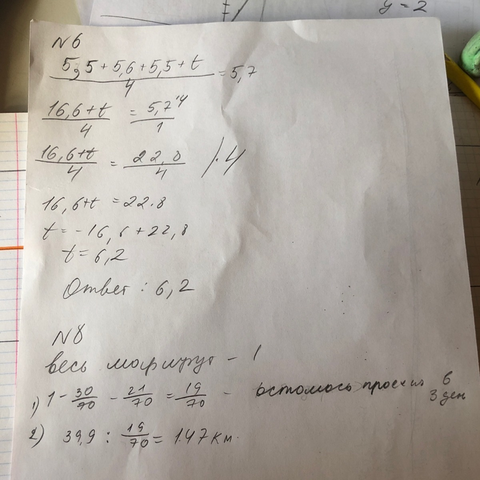 y = 2
N6
5,5 + 5,6 + 5,5 + t / 4 = 5,7
16,6 + t / 4 = 5,7 ·4 / 1
16,6 + t / 4 = 22,8 / 4 / · 4
16,6 + t = 22.8
t = -16,6 + 22,8
t = 6,2
Ответ : 6,2
N8
весь маршрут - 1
1) 1 - 30/70 - 21/70 = 19/70 - осталось в
3 ден
2) 39,9 : 19/70 = 147 км.